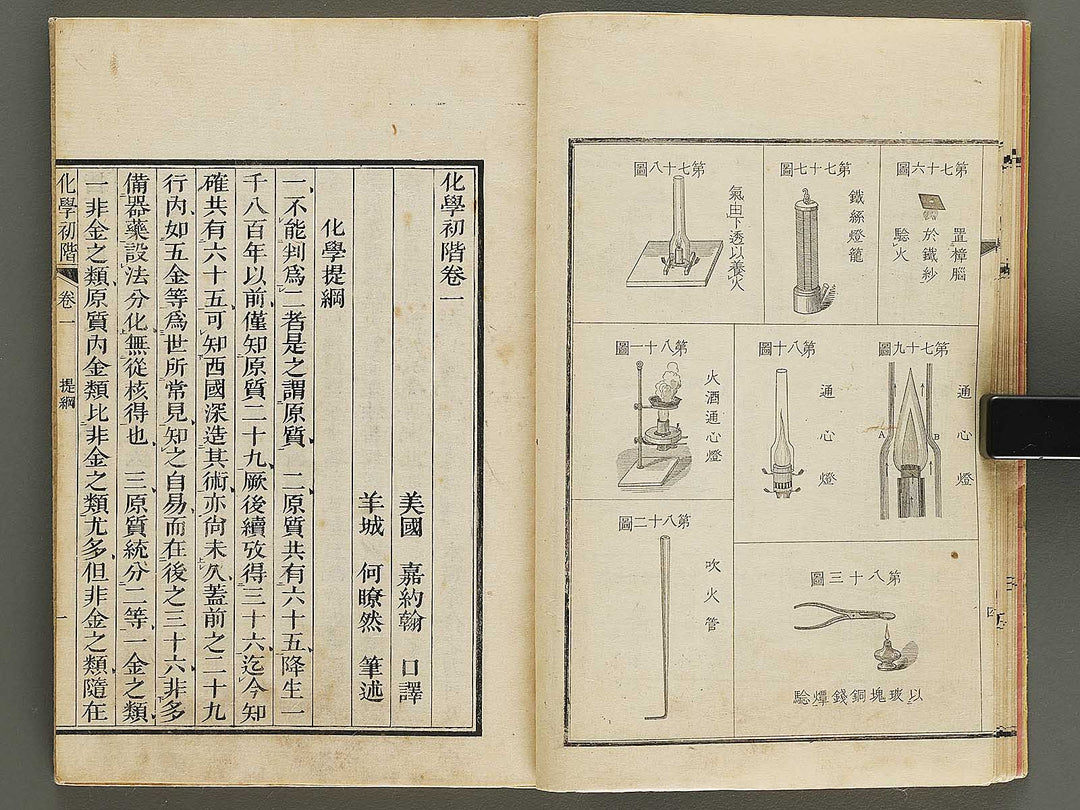 第七十六圖
置樟腦
於鐵紗
驗火
第七十七圖
鐵絲燈籠
第七十八圖
氣由下透以養火
第七十九圖
通心燈
A
B
第八十圖
通心燈
第八十一圖
火酒通心燈
第八十二圖
吹火管
第八十三圖
以玻塊銅錢燂驗
化學初階卷一
美國 嘉約翰 口譯
羊城 何瞭然 筆述
化學提綱
一不能判爲二者是之謂原質 二原質共有六十五降生一
千八百年以前僅知原質二十九厥後續攷得三十六迄今知
確共有六十五可知西國深造其術亦尙未久蓋前之二十九
行內如五金等爲世所常見知之自易而在後之三十六非多
備器藥設法分化無從核得也 三原質統分二等一金之類
一非金之類原質內金類比非金之類尤多但非金之類隨在
化學初階 卷一 提綱 一